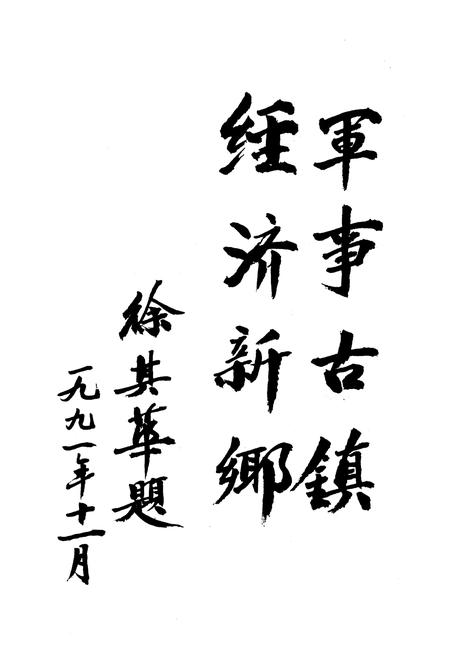 軍事古鎮
经济新鄉
徐其華題
一九九一年十一月